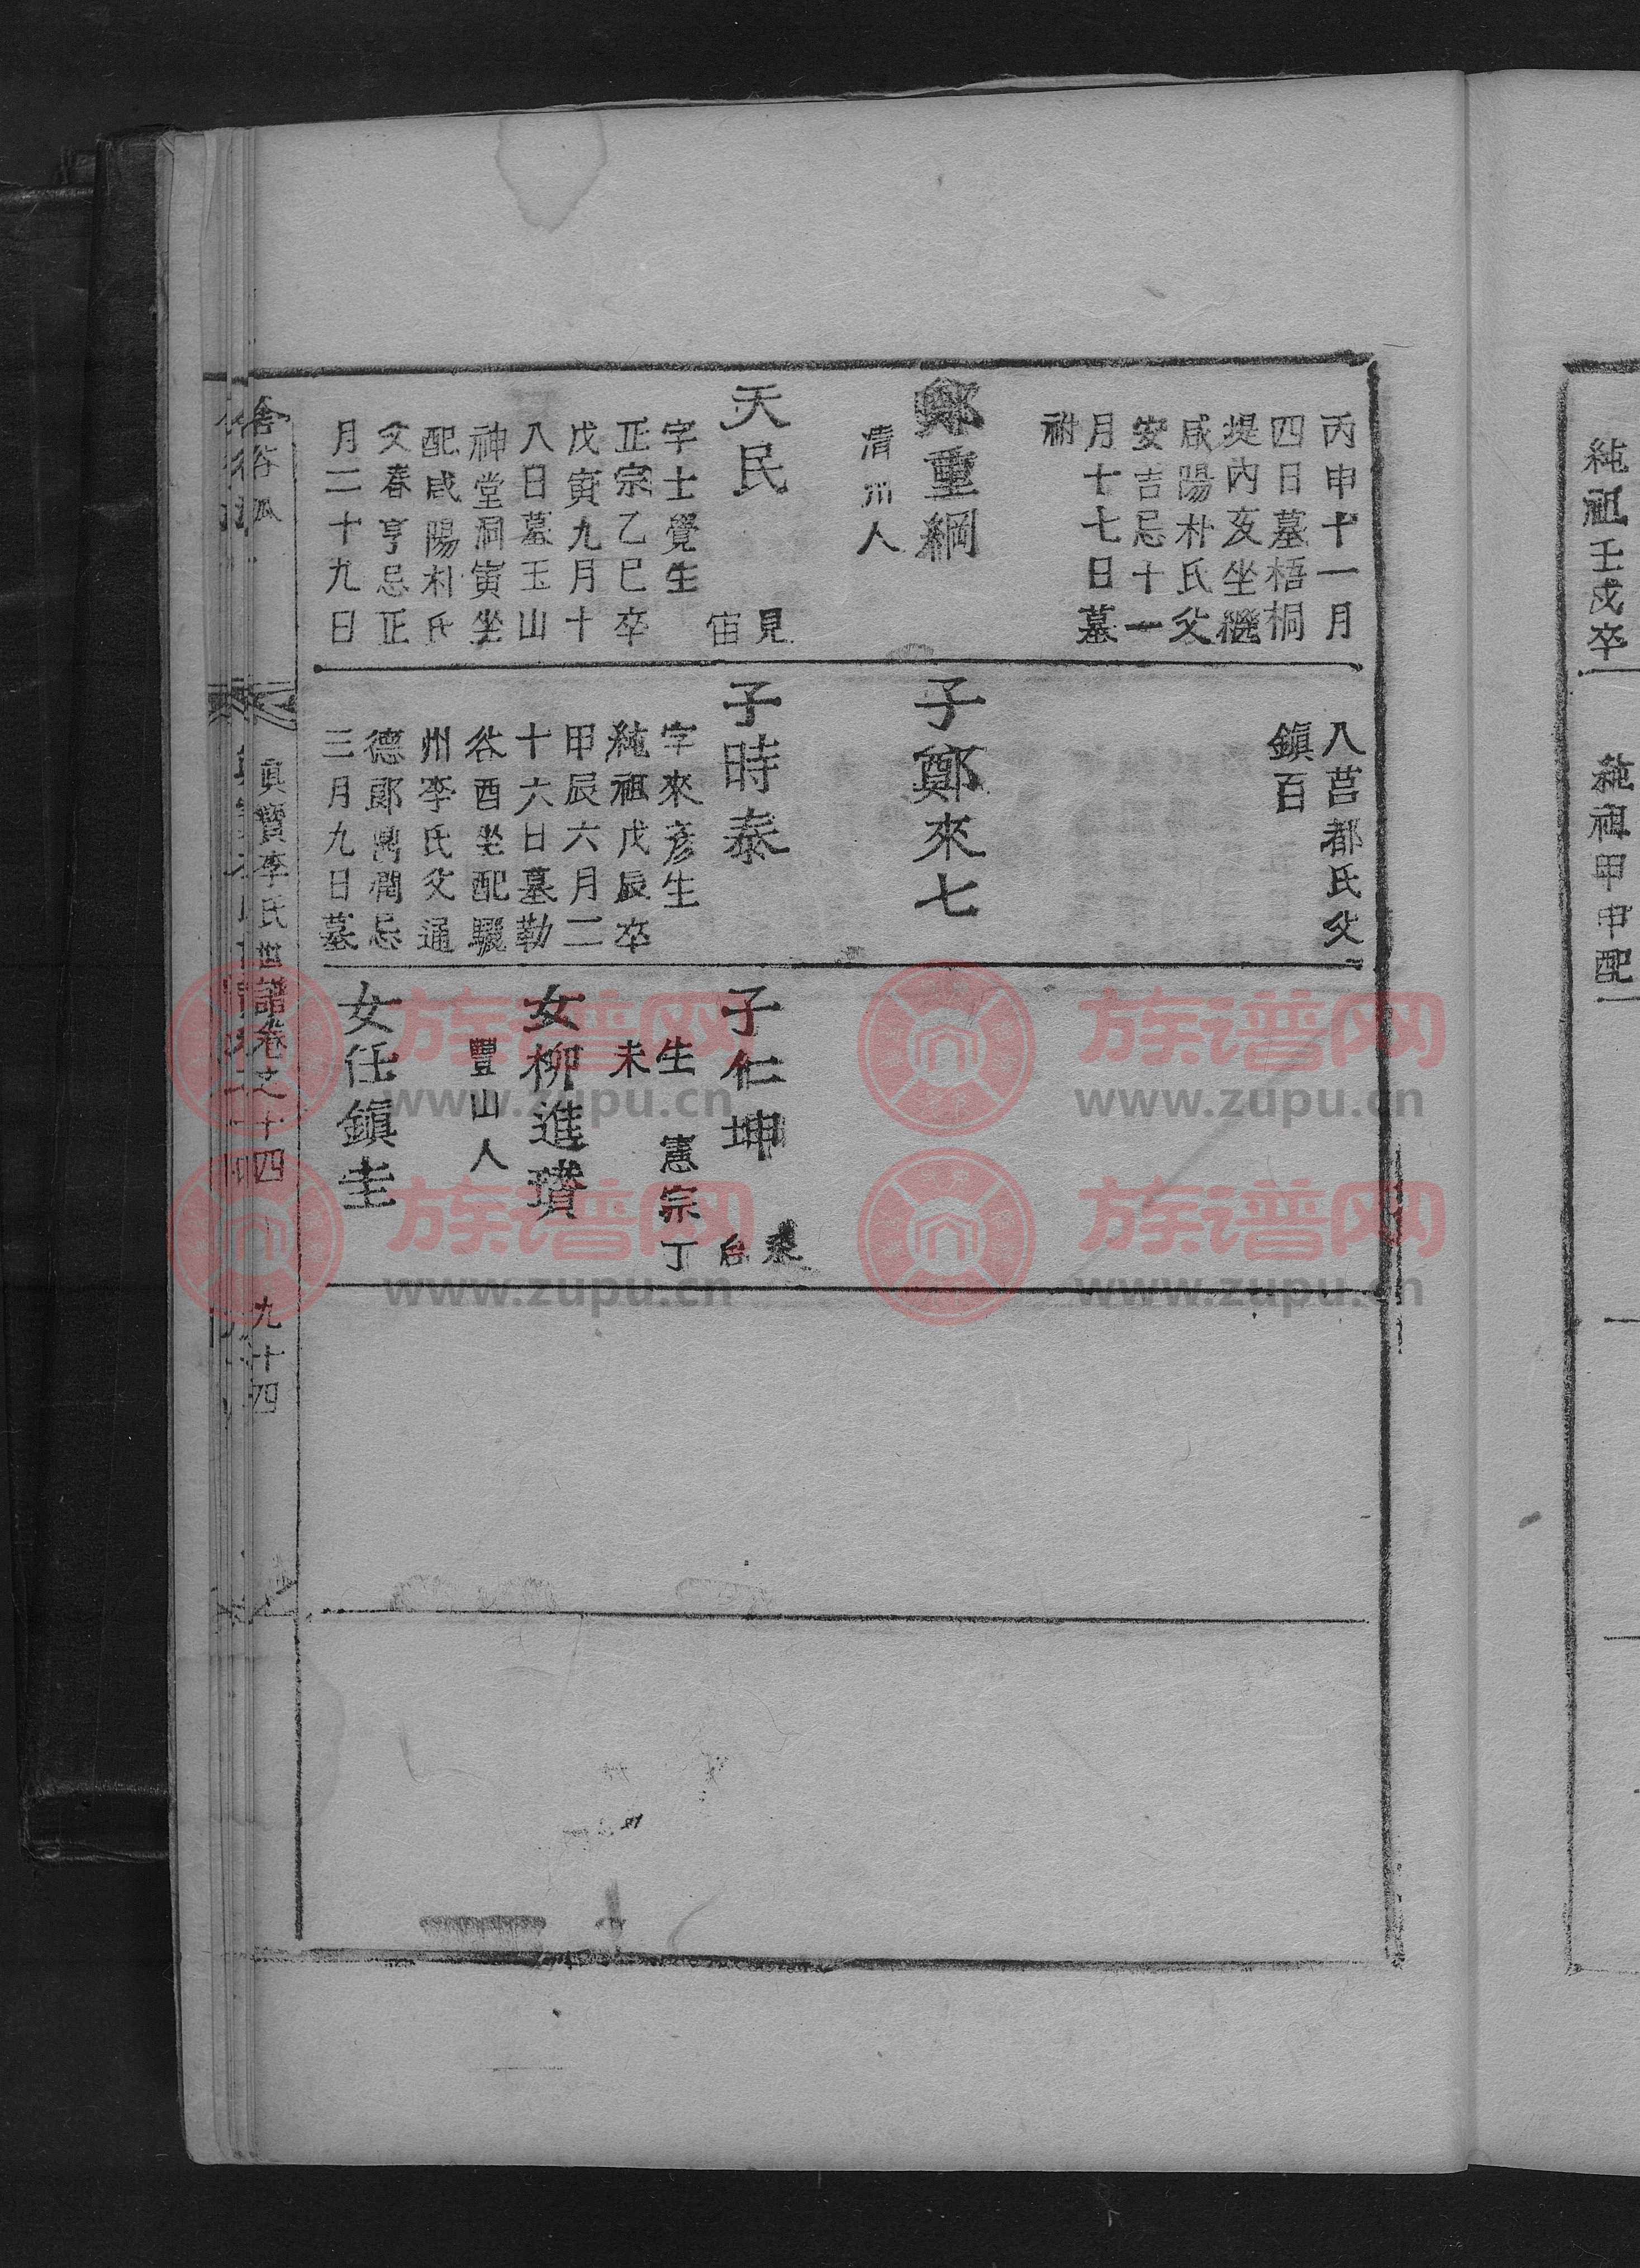 丙申十一月
四日墓梧桐
堤內亥坐繼
咸陽朴氏父
安吉忌十一
月十七日墓
祔
鄭重綱
清州人
天民
見
宙
字士覺生
正宗乙巳卒
戊寅九月十
八日墓玉山
神堂洞寅坐
配咸陽朴氏
父春亨忌正
月二十九日
八莒都氏父
鎭百
子鄭來七
子時泰
字來彥生
純祖戊辰卒
甲辰六月二
十六日墓勒
谷酉坐配驪
州李氏父通
德郞鼎潤忌
三月九日墓
子仁坤
台
生憲宗丁
未
女柳進璳
豐山人
女任鎭圭
眞寶李氏世譜卷之十四
九十四
純祖壬戌卒
純祖甲申配
族谱网
www.zupu.cn
族谱网
www.zupu.cn
族谱网
www.zupu.cn
族谱网
www.zupu.cn